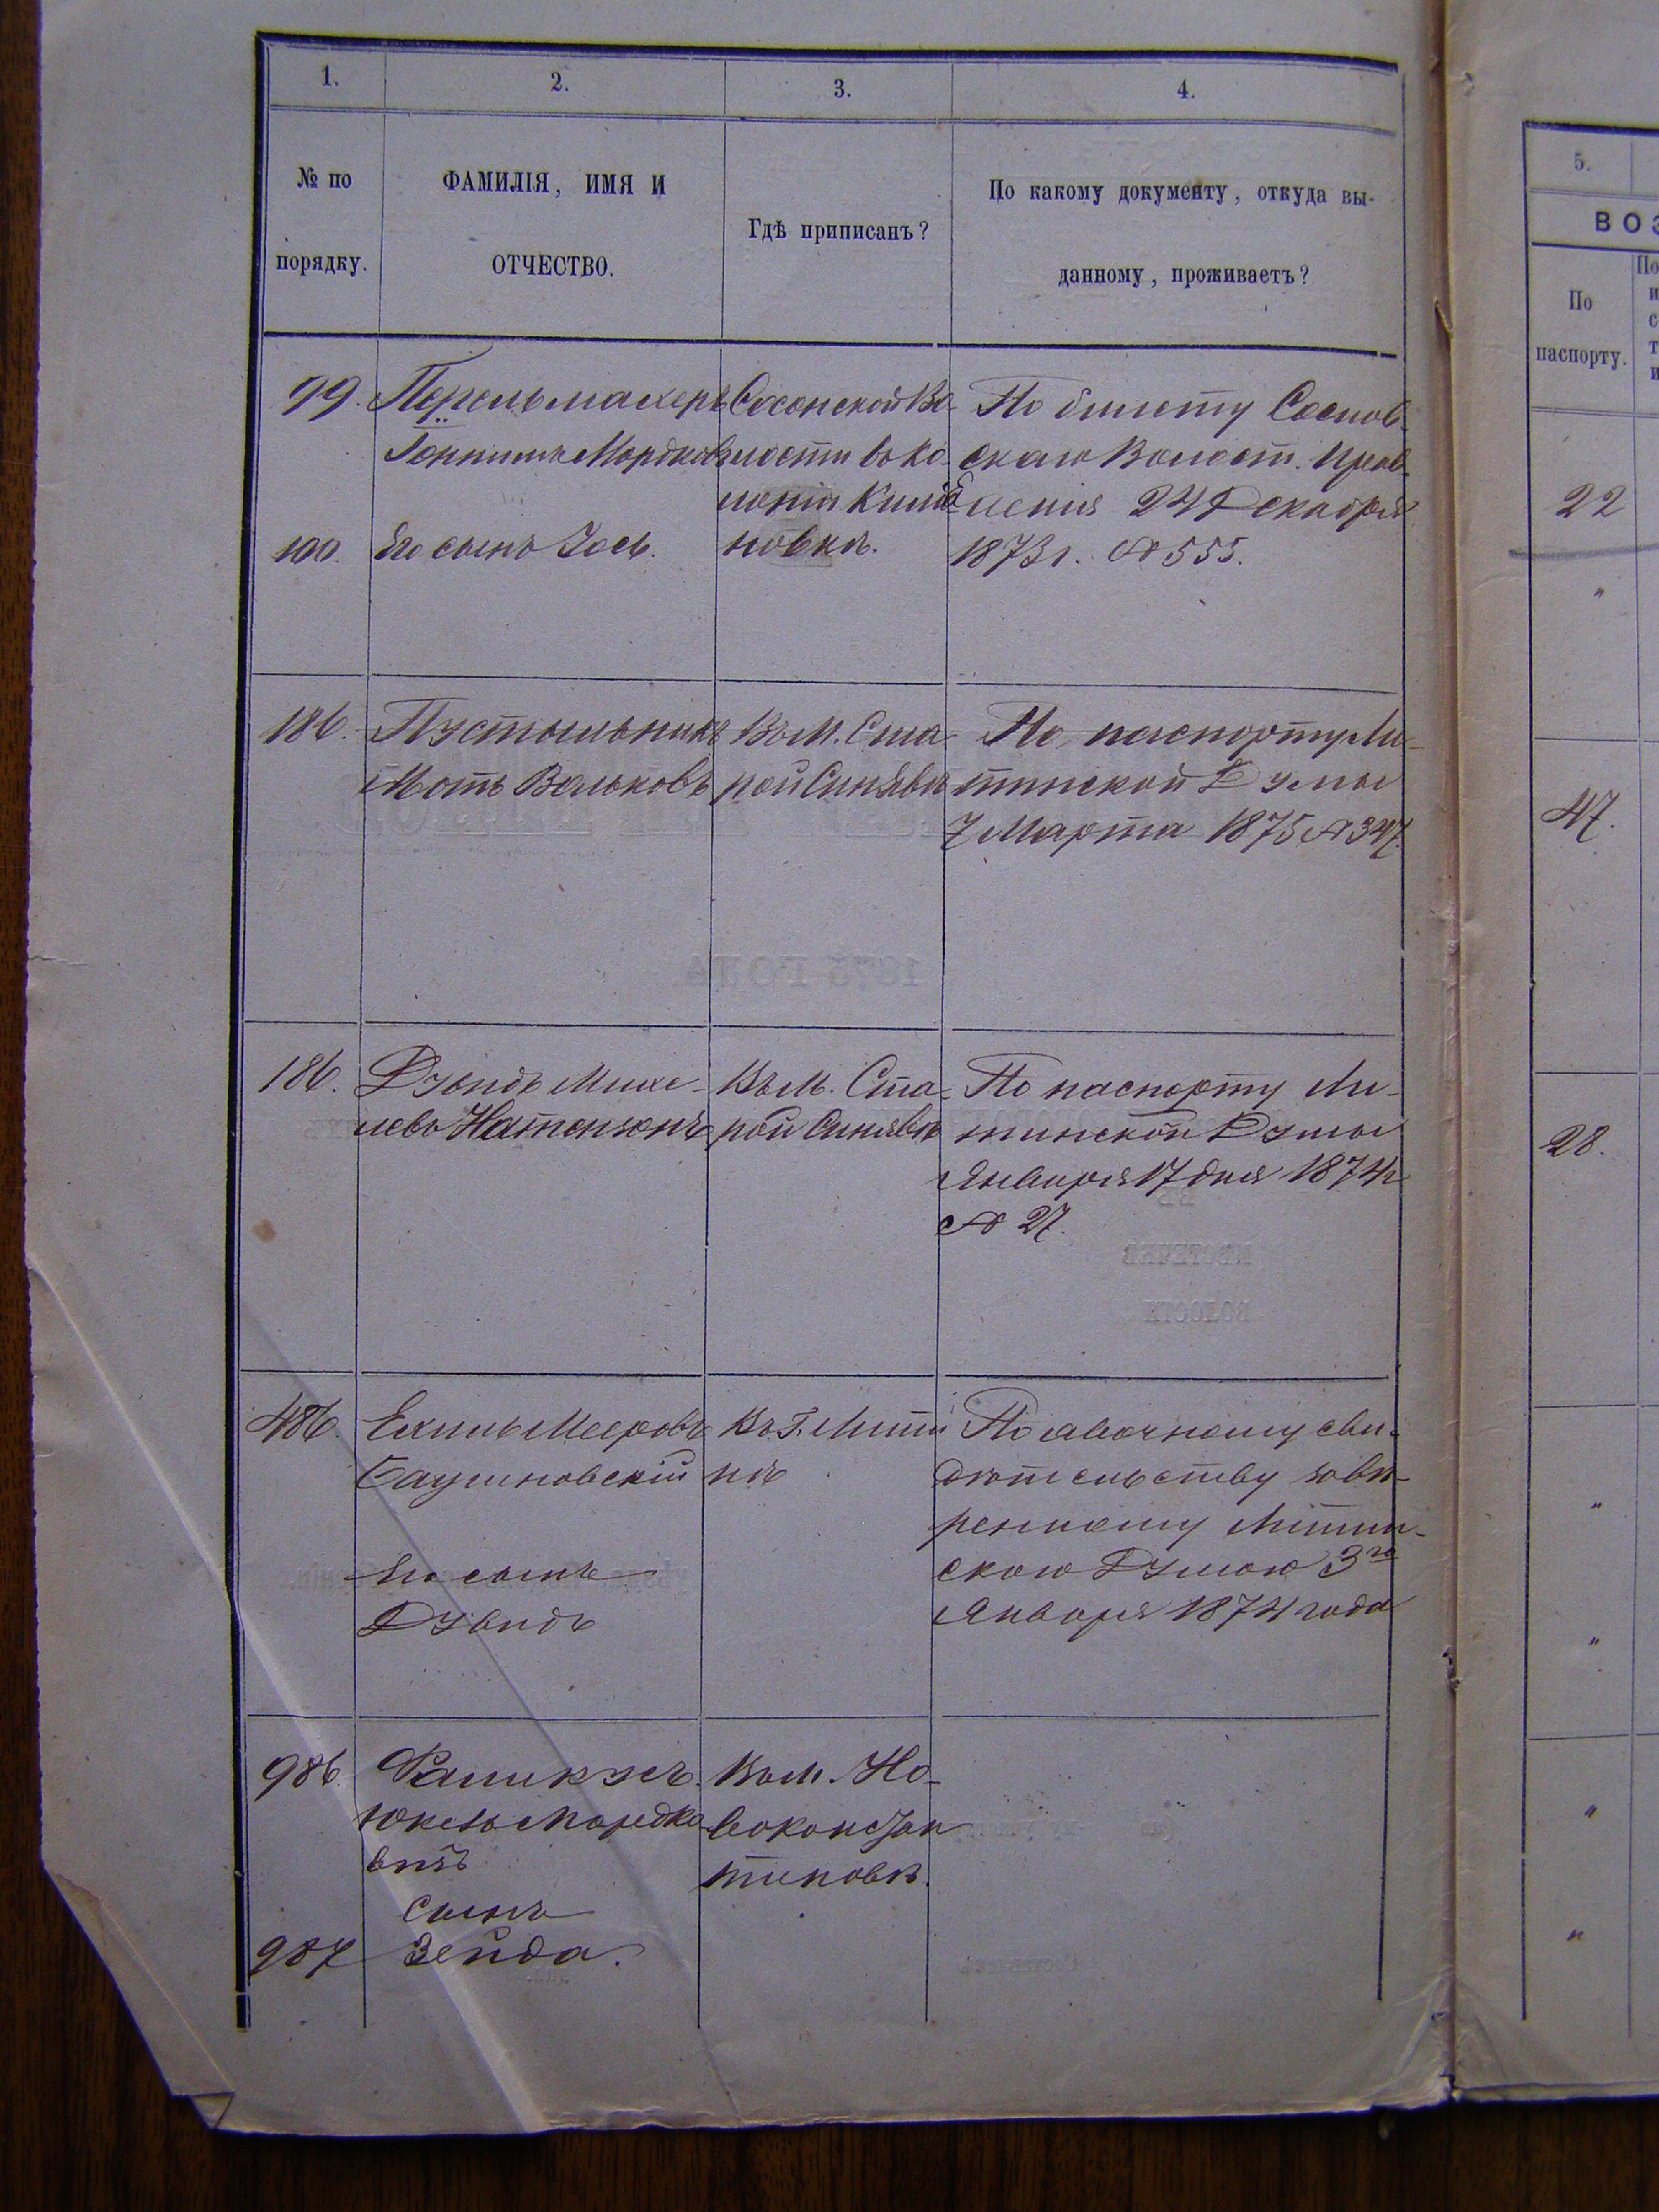 1.
2.
3.
4.
№ по
порядку.
ФАМИЛІЯ, ИМЯ И
ОТЧЕСТВО.
Гдѣ приписанъ?
По какому документу, откуда вы-
данному, проживаетъ?
99.
Перельмахеръ
Мордков
100.
Его сынъ Іось.
Сосонской Во-
лости въ Ко-
лоніи
новка.
По билету Соснов-
скаго Волост. Прав-
ленія 24 Декабря
1873 г. № 555.
186.
Пустыльникъ
Моть Вольковъ
Въ М. Ста-
рой Синявѣ
По паспорту Ли-
тинской Думы
7 Марта 1875 № 347.
186.
Дувидъ Михе-
левъ Натензонъ
Въ М. Ста-
рой Синявѣ
По паспорту Ли-
тинской Думы
Января 17 дня 1874 г.
№ 27.
486.
Ехиль Мееровъ
Баумновскій
Его сынъ
Дувидъ
Въ Г. Лити-
нѣ
По явочному сви-
дѣтельству завѣ-
ренному Литин-
скою Думою 3го
Января 1874 года
986.
Юкель Мордко-
вичъ
сынъ
987
Зейда.
Въ м. Но-
воконстан
тиновѣ.
5.
ВОЗ
По
паспорту.
По
и
с
т
и
22
"
47.
28.
"
"
"
"